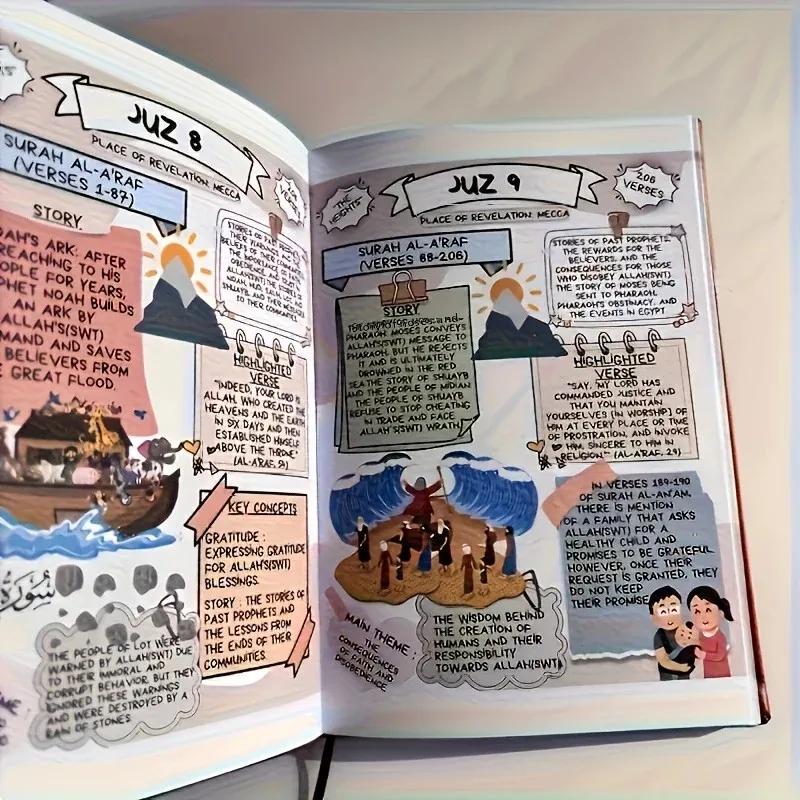 JUZ 8
PLACE OF REVELATION: MECCA
SURAH AL-A'RAF
(VERSES 1-87)
STORY
AH'S ARK: AFTER
REACHING TO HIS
OPLE FOR YEARS,
PHET NOAH BUILDS
AN ARK BY
ALLAH'S(SWT)
MAND AND SAVES
BELIEVERS FROM
E GREAT FLOOD.
STORIES OF PAST PROPHETS,
THE IMPORTANCE OF
TO THEIR COMMUNITIES
HIGHLIGHTED
VERSE
"INDEED, YOUR LORD IS
ALLAH, WHO CREATED THE
HEAVENS AND THE EARTH
IN SIX DAYS AND THEN
ESTABLISHED HIMSELF
ABOVE THE THRONE"
(AL-A'RAF,
KEY CONCEPTS
GRATITUDE :
EXPRESSING GRATITUDE
FOR ALLAH'S(SWT)
BLESSINGS.
STORY : THE STORIES OF
PAST PROPHETS AND
THE LESSONS FROM
THE ENDS OF THEIR
COMMUNITIES.
سُورَة
THE PEOPLE OF LOT WERE
WARNED BY ALLAH(SWT) DUE
TO THEIR IMMORAL AND
CORRUPT BEHAVIOR, BUT THEY
IGNORED THESE WARNINGS
AND WERE DESTROYED BY A
RAIN OF STONES
THE
HEIGHTS
JUZ 9
206
VERSES
PLACE OF REVELATION: MECCA
SURAH AL-A'RAF
(VERSES 88-206)
STORY
PHARAOH: MOSES CONVEYS
ALLAH'S(SWT) MESSAGE TO
PHARAOH, BUT HE REJECTS
IT AND IS ULTIMATELY
DROWNED IN THE RED
SEA.THE STORY OF SHUAYB
AND THE PEOPLE OF MIDIAN
THE PEOPLE OF SHUAYB
REFUSE TO STOP CHEATING
IN TRADE AND FACE
ALLAH'S(SWT) WRATH
STORIES OF PAST PROPHETS,
THE REWARDS FOR THE
BELIEVERS, AND THE
CONSEQUENCES FOR THOSE
WHO DISOBEY ALLAH(SWT)
THE STORY OF MOSES BEING
SENT TO PHARAOH,
PHARAOH'S OBSTINACY, AND
THE EVENTS IN EGYPT
HIGHLIGHTED
VERSE
"SAY, 'MY LORD HAS
COMMANDED JUSTICE AND
THAT YOU MAINTAIN
YOURSELVES (IN WORSHIP) OF
HIM AT EVERY PLACE OR TIME
OF PROSTRATION, AND INVOKE
HIM, SINCERE TO HIM IN
RELIGION.'" (AL-A'RAF, 29)
IN VERSES 189-190
OF SURAH AL-AN'AM,
THERE IS MENTION
OF A FAMILY THAT ASKS
ALLAH(SWT) FOR A
HEALTHY CHILD AND
PROMISES TO BE GRATEFUL.
HOWEVER, ONCE THEIR
REQUEST IS GRANTED, THEY
DO NOT KEEP
THEIR PROMISE
MAIN THEME :
THE
CONSEQUENCES
OF FAITH AND
DISOBEDIENCE
THE WISDOM BEHIND
THE CREATION OF
HUMANS AND THEIR
RESPONSIBILITY
TOWARDS ALLAH(SWT)